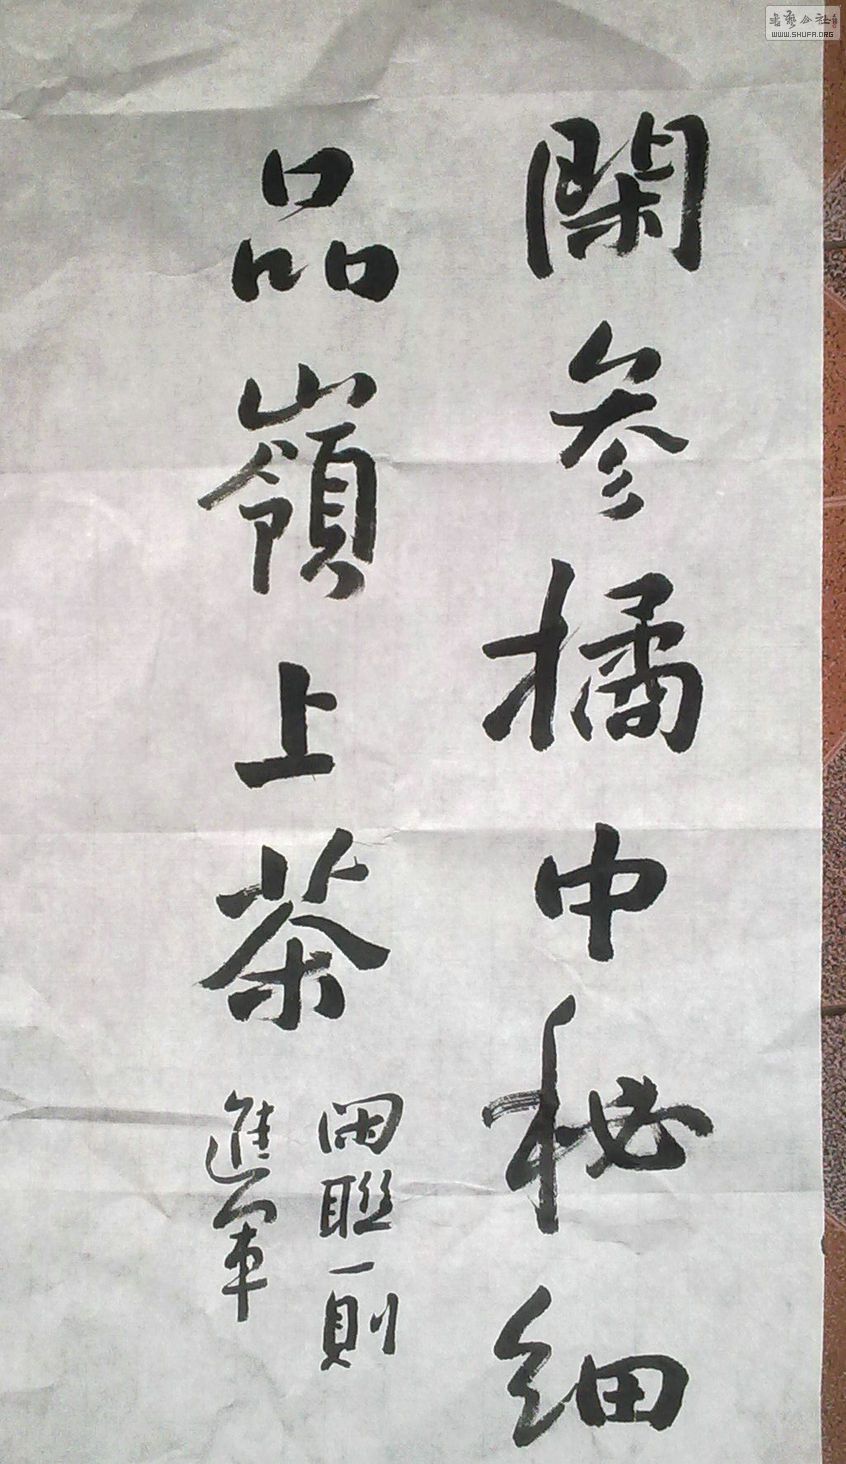 閑参橘中秘细
品嶺上茶
閑聯一則
進軍
書藝公社
WWW.SHUFA.ORG